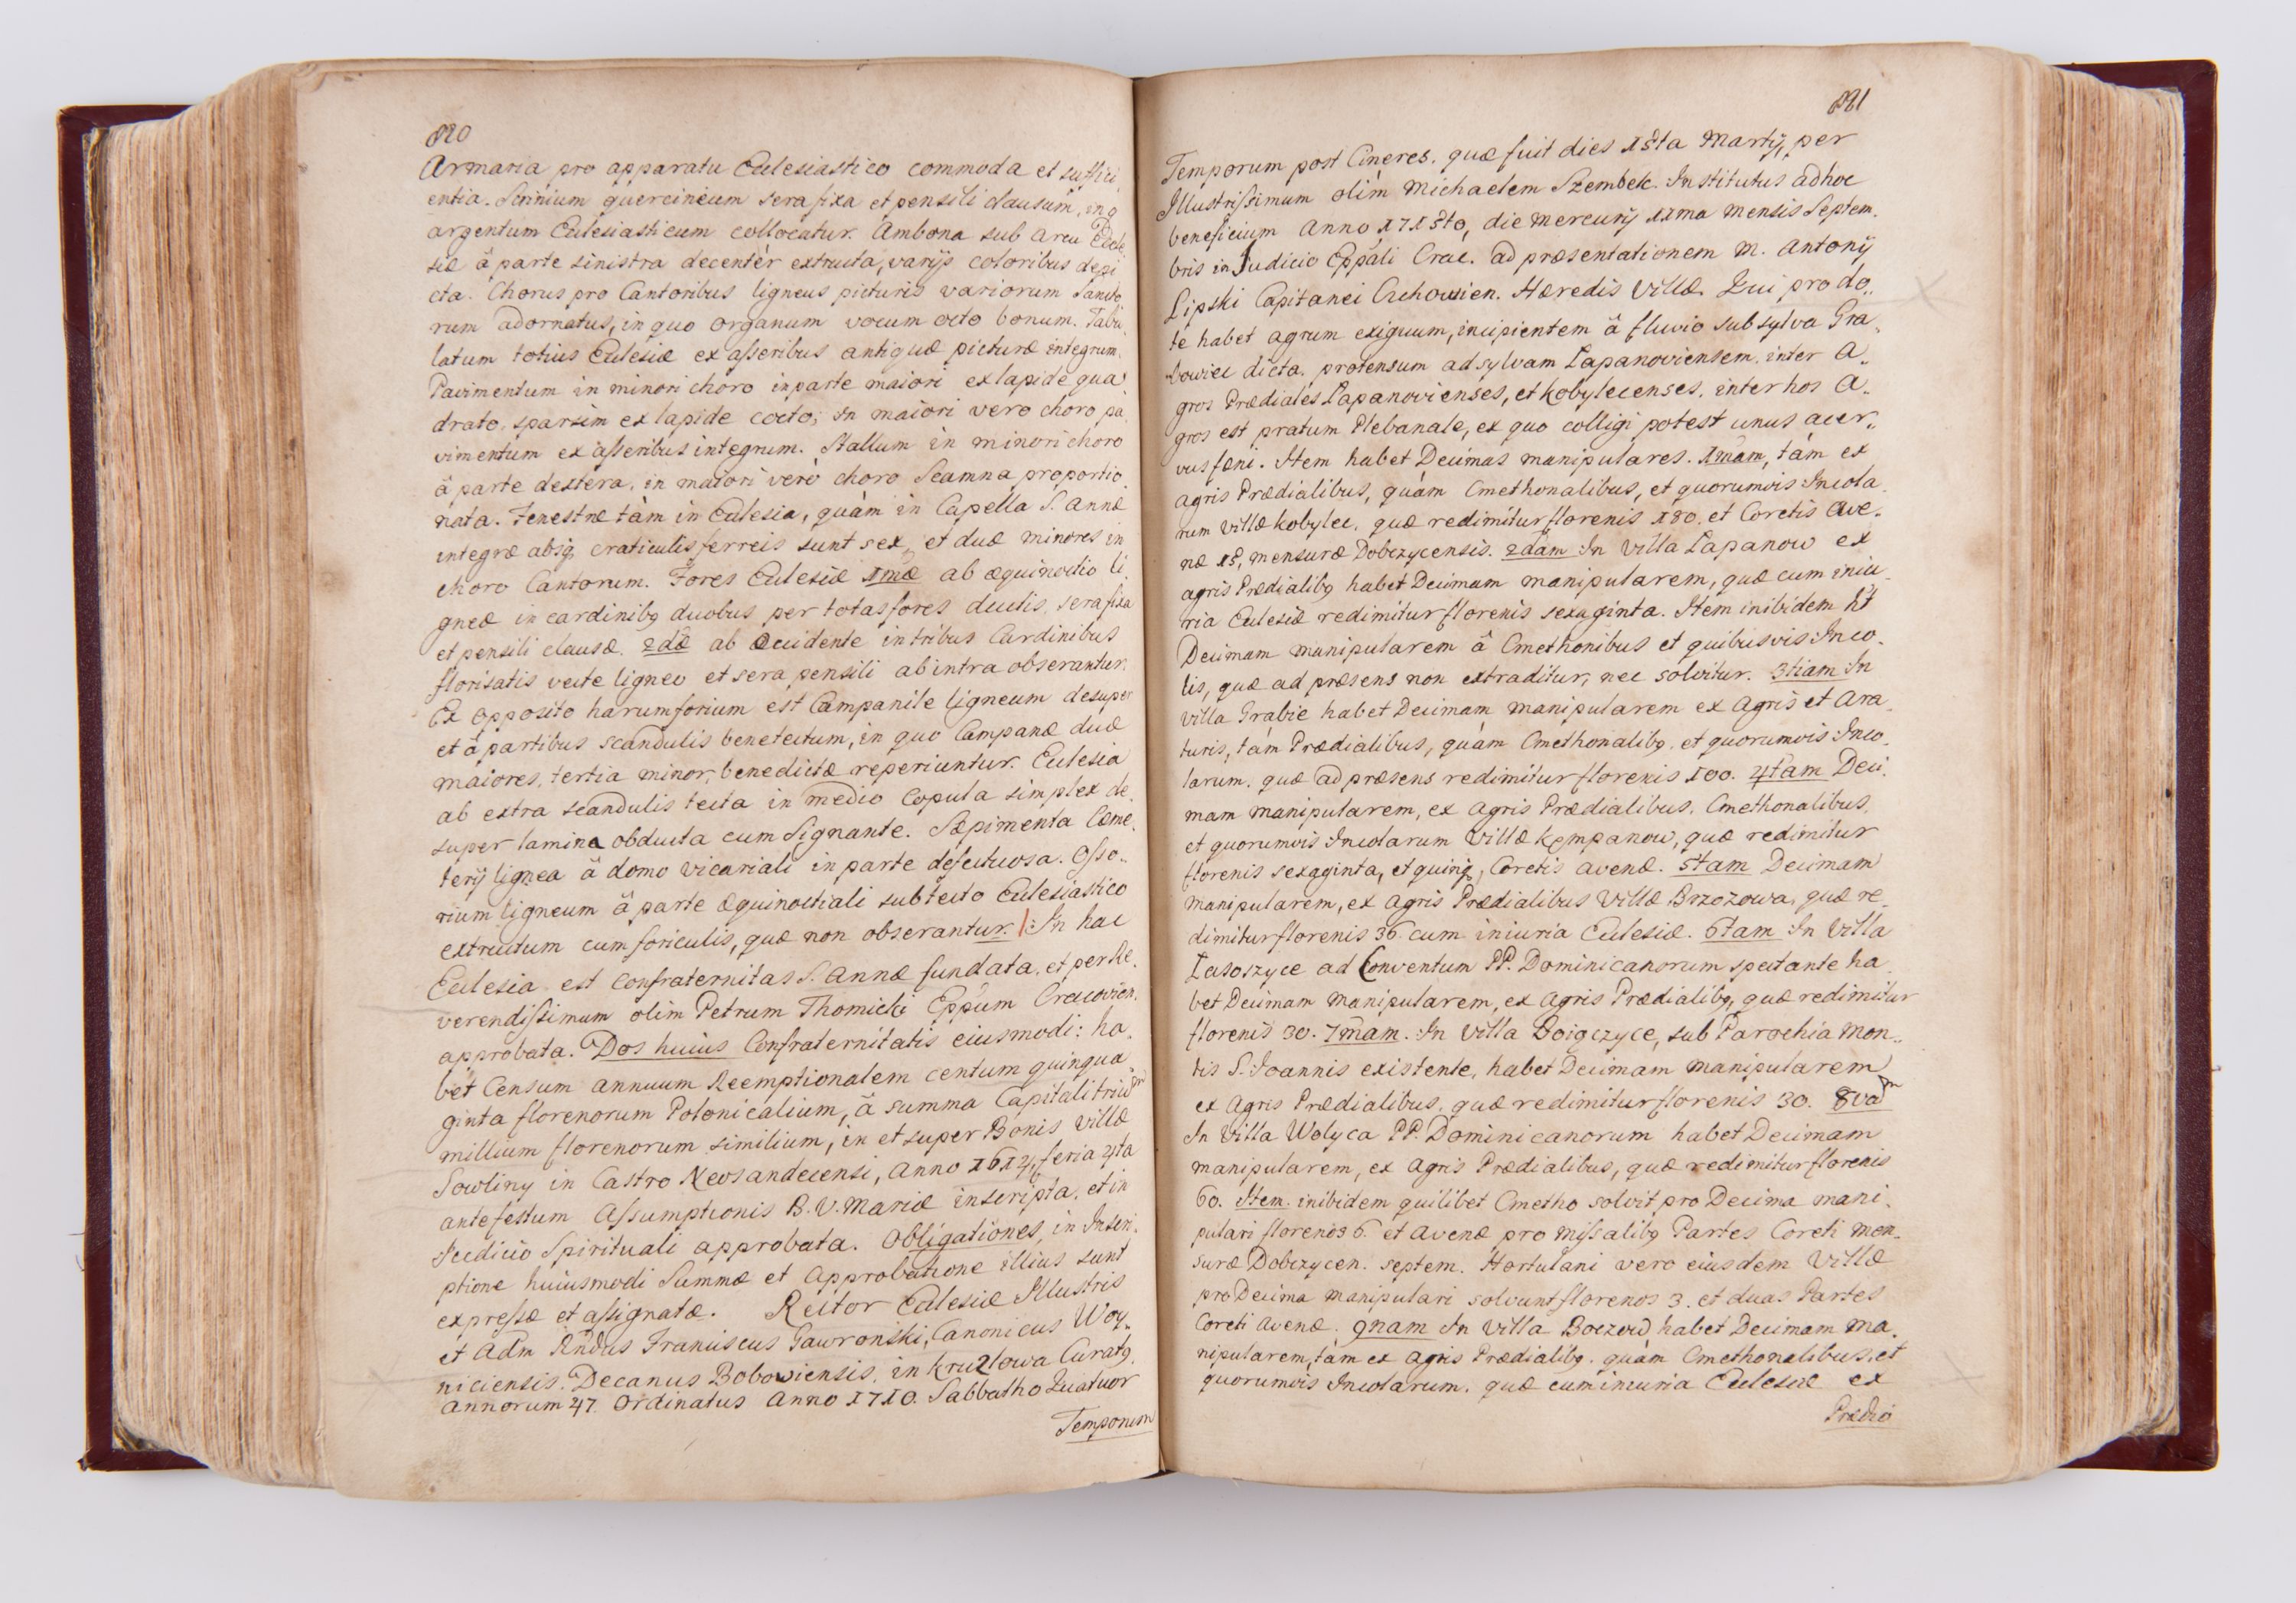 820
Armaria pro apparatu Ecclesiastico commoda et suffici,
entia. Scrinium quercineum sera fixa et pensili clausum, in q
argentum Ecclesiasticum collocatur. Ambona sub Arcu Eccle
siæ â parte sinistra decentèr extructa, varÿs coloribus depi
cta. Chorus pro Cantoribus ligneus picturis variorum Sancto,
rum adornatus, in quo organum vocum octo bonum. Tabu,
latum totius Ecclesiæ ex aſseribus antiquæ picturæ integrum.
Pavimentum in minori choro in parte maiori ex lapide qua
drato, sparsim ex lapide cocto; in maiori vero choro pa
vimentum ex aſseribus integrum. Stallum in minori choro
â parte dextera, in maiori verò choro Scamna proportio,
nata. Fenestræ tàm in Ecclesia, quàm in Capella S. Annæ
integræ absq craticulis ferreis sunt sex, et duæ minores in
choro Cantorum. Fores Ecclesiæ 1mæ ab æquinoctio li,
gneæ in cardinibq duobus per totas fores ductis, sera fixa
et pensili clausæ. 2dæ ab Occidente in tribus Cardinibus
florisatis vecte ligneo et sera pensili ab intra obserantur.
Ex opposito harum forium est Campanile ligneum desuper
et â partibus scandulis benetectum, in quo Campanæ duæ
maiores, tertia minor, benedictæ reperiuntur. Ecclesia
ab extra scandulis tecta in medio Copula simplex de,
super lamina obducta cum Signante. Sæpimenta Cæme,
terÿ lignea â domo vicariali in parte defectuosa. Oſso,,
rium ligneum â parte Æquinoctiali sub tecto Ecclesiastico
extructum cum foriculis, quæ non obserantur. /: In hac
Ecclesia est Confraternitas S. Annæ fundata, et per Re,
verendiſsimum olim Petrum Thomicki Eppum Cracovien,
approbata. Dos huius Confraternitatis eiusmodi: ha,
bet Censum annuum Reemptionalem centum quinqua
ginta florenorum Polonicalium, â summa Capitali triũ
millium florenorum similium, in et super Bonis Villæ
Sowliny in Castro Neosandecensi, Anno 1614, feria 4ta
ante festum Aſsumptionis B. V. Mariæ inscripta, et in
Judicio Spirituali approbata. Obligationes, in Inscri,
ptione huiusmodi Summæ et Approbatione illius sunt
expreſsæ et aſsignatæ. Rector Ecclesiæ Illustris
et Adm Rndus Franciscus Gawronski, Canonicus Woy,,
niciensis, Decanus Bobowiensis, in Kruzlowa Curatq
Annorum 47. Ordinatus Anno 1710. Sabbatho Quatuor
Temporum
821
Temporum post Cineres, quæ fuit dies 15ta Martÿ, per
Illustriſsimum olim Michaelem Szembek. Institutus ad hoc
beneficium Anno 1715to, die Mercurÿ 11ma mensis Septem,
bris in Judicio Eppali Crac. ad præsentationem M. Antonÿ
Lipski Capitanei Czchovien. Hæredis Villæ. Qui pro do,,
te habet agrum exiguum, incipientem â fluvio sub sylva Gra,
bowiec dicta, protensum ad sylvam Łapanoviensem, inter A,,
gros Prædiales Łapanovienses, et Kobylecenses, inter hos A,,
gros est pratum Plebanale, ex quo colligi potest unus acer,,
vus fæni. Item habet Decimas manipulares. 1mam, tàm ex
Agris Prædialibus, quàm Cmethonalibus, et quorumvis Incola
rum Villæ Kobylec, quæ redimitur florenis 180. et Coretis Ave,
næ 15, mensuræ Dobczycensis. 2dam In Villa Łapanow ex
agris Prædialibq habet Decimam manipularem, quæ cum iniu,
ria Ecclesiæ redimitur florenis sexaginta. Item inibidem ht
Decimam manipularem â Cmethonibus et quibusvis Inco,
lis, quæ ad præsens non extraditur, nec solvitur. 3tiam In
Villa Grabie habet Decimam manipularem ex Agris et Ara,
turis, tàm Prædialibus, quàm Cmethonalibq, et quorumvis Inco,
larum, quæ ad præsens redimitur florenis 100. 4tam Deci,
mam manipularem, ex Agris Prædialibus, Cmethonalibus,
et quorumvis Incolarum Villæ Kępanow, quæ redimitur
florenis sexaginta, et quinq, Coretis avenæ. 5tam Decimam
manipularem, ex Agris Prædialibus Villæ Brzozowa, quæ re,
dimitur florenis 36 cum iniuria Ecclesiæ. 6tam In Villa
Łasoszyce ad Conventum PP. Dominicanorum spectante ha
bet Decimam manipularem, ex Agris Prædialibq, quæ redimitur
florenis 30. 7mam. In Villa Boigczyce, sub Parochia Mon,,
tis S. Joannis existente, habet Decimam manipularem
ex Agris Prædialibus, quæ redimitur florenis 30. 8vam
In Villa Wolyca PP. Dominicanorum habet Decimam
manipularem, ex Agris Prædialibus, quæ redimitur florenis
60. Item inibidem quilibet Cmetho solvit pro Decima mani,
pulari florenos 6. et Avenæ pro miſsalibq Partes Coreti men,
suræ Dobczycen. septem. Hortulani vero eiusdem Villæ
pro Decima manipulari solvunt florenos 3. et duas Partes
Coreti Avenæ. 9nam In Villa Boczow habet Decimam ma,
nipularem, tàm ex Agris Prædialibq, quàm Cmethonalibus, et
quorumvis Incolarum, quæ cum iniuria Ecclesiæ ex
Prædio